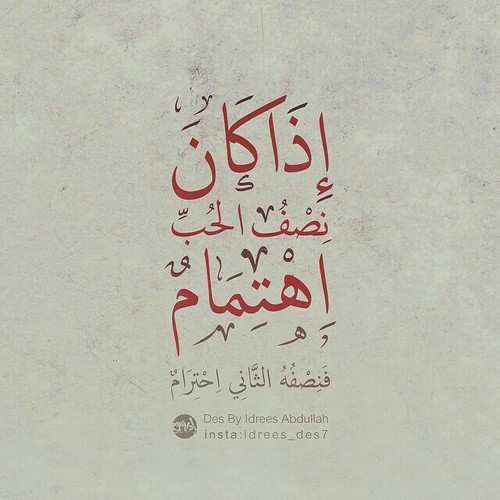 إِذَا كَانَ
نِصْفُ الحُبِّ
اِهْتِمَامٌ
فَنِصْفُهُ الثَّانِي اِحْتِرَامٌ
Des By Idrees Abdullah
insta:idrees_des7